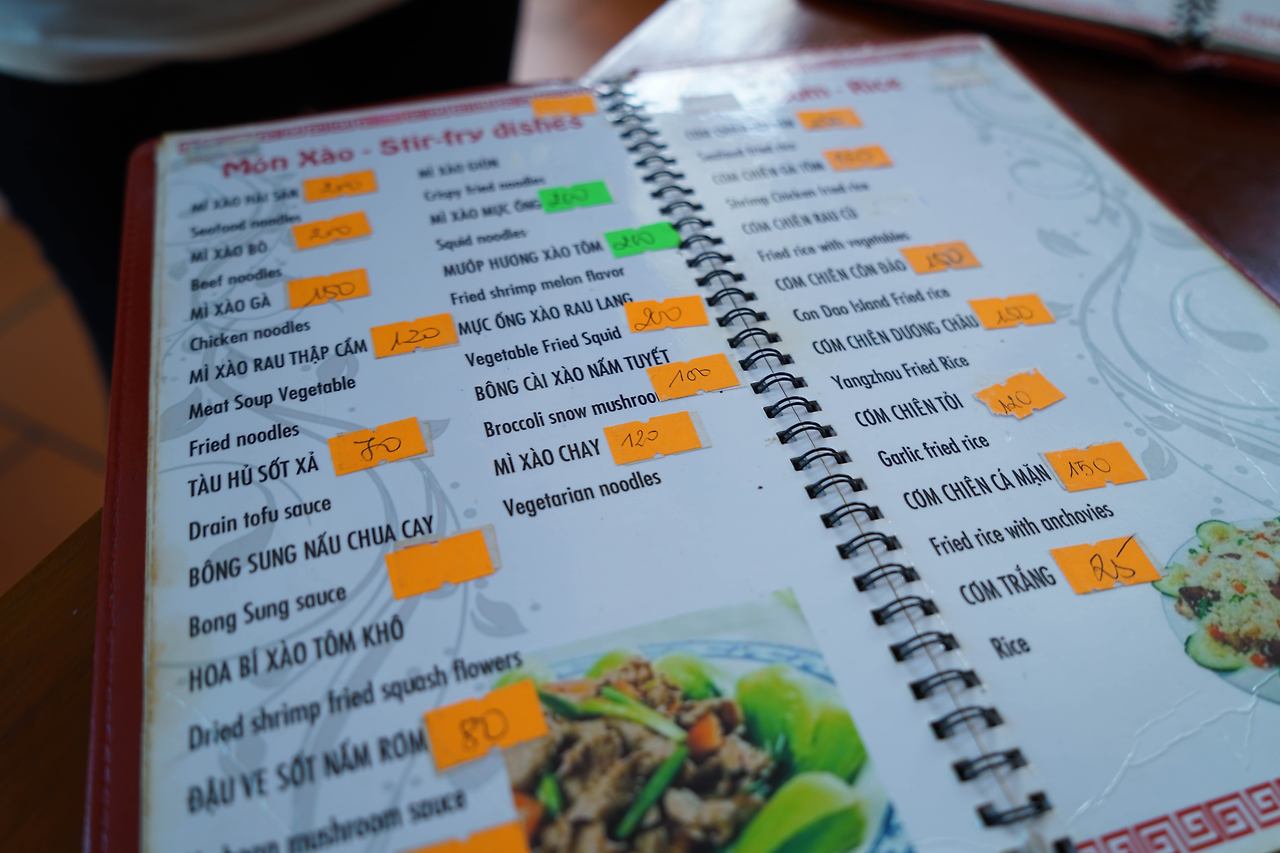 Món Xào - Stir-fry dishes
MÌ XÀO HẢI SẢN 200
Seafood noodles
MÌ XÀO BÒ 200
Beef noodles
MÌ XÀO GÀ 150
Chicken noodles
MÌ XÀO RAU THẬP CẨM 120
Meat Soup Vegetable
Fried noodles
TÀU HỦ SỐT XẢ 70
Drain tofu sauce
BÔNG SUNG NẤU CHUA CAY
Bong Sung sauce
HOA BÍ XÀO TÔM KHÔ
Dried shrimp fried squash flowers
ĐẬU VE SỐT NẤM ROM 80
mushroom sauce
MÌ XÀO DIÒN
Crispy fried noodles
MÌ XÀO MỰC ỐNG 200
Squid noodles
MƯỚP HƯƠNG XÀO TÔM 200
Fried shrimp melon flavor
MỰC ỐNG XÀO RAU LANG 200
Vegetable Fried Squid
BÔNG CẢI XÀO NẤM TUYẾT 100
Broccoli snow mushroo
MÌ XÀO CHAY 120
Vegetarian noodles
- Rice
Seafood fried rice
CƠM CHIÊN GÀ TÔM
Shrimp Chicken fried rice
CƠM CHIÊN RAU CỦ
Fried rice with vegetables
CƠM CHIÊN CÔN ĐẢO 150
Con Dao Island Fried rice
CƠM CHIÊN DƯƠNG CHÂU 150
Yangzhou Fried Rice
CƠM CHIÊN TỎI 120
Garlic fried rice
CƠM CHIÊN CÁ MẶN 150
Fried rice with anchovies
CƠM TRẮNG 25
Rice